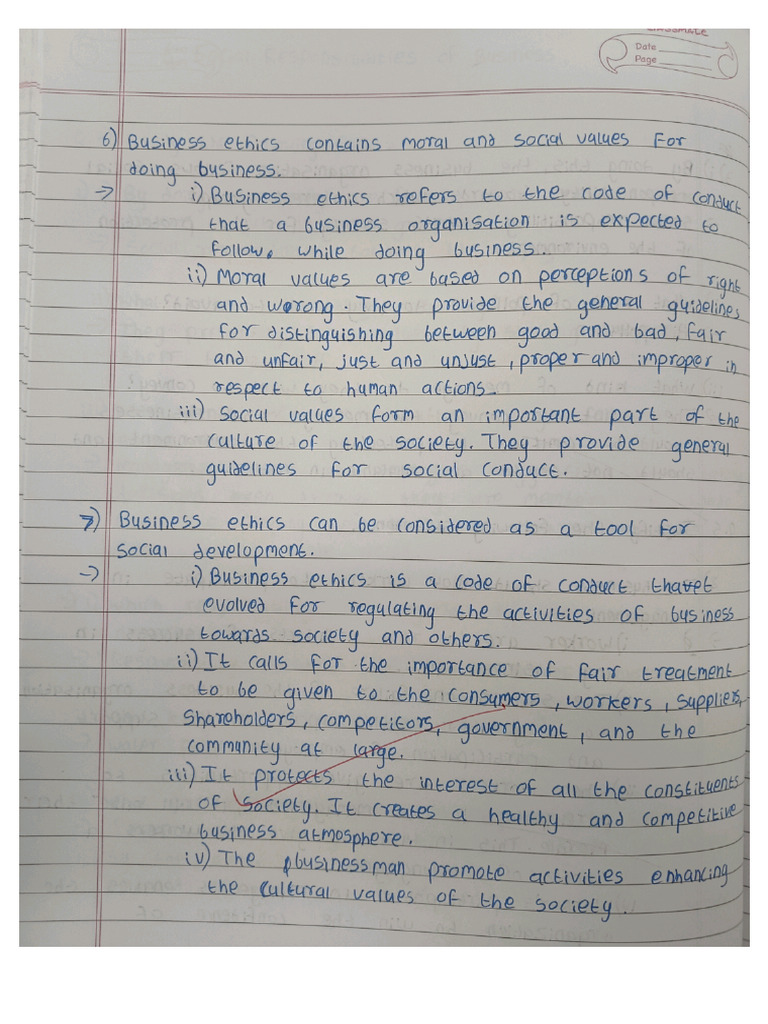 classmate
Date
Page
6) Business ethics contains moral and social values for
doing business.
→ i) Business ethics refers to the code of conduct
that a business organisation is expected to
follow, while doing business.
ii) Moral values are based on perceptions of right
and worong. They provide the general guidelines
for distinguishing between good and bad, fair
and unfair, just and unjust, proper and improper in
respect to human actions.
iii) Social values form an important part of the
culture of the society. They provide general
guidelines for social conduct.
7) Business ethics can be considered as a tool for
social development.
→ i) Business ethics is a code of conduct that
evolved for regulating the activities of business
towards society and others.
ii) It calls for the importance of fair treatment
to be given to the consumers, workers, suppliers,
shareholders, competitors, government, and the
community at large.
iii) It protects the interest of all the constituents
of society. It creates a healthy and competitive
business atmosphere.
iv) The businessman promote activities enhancing
the cultural values of the society.